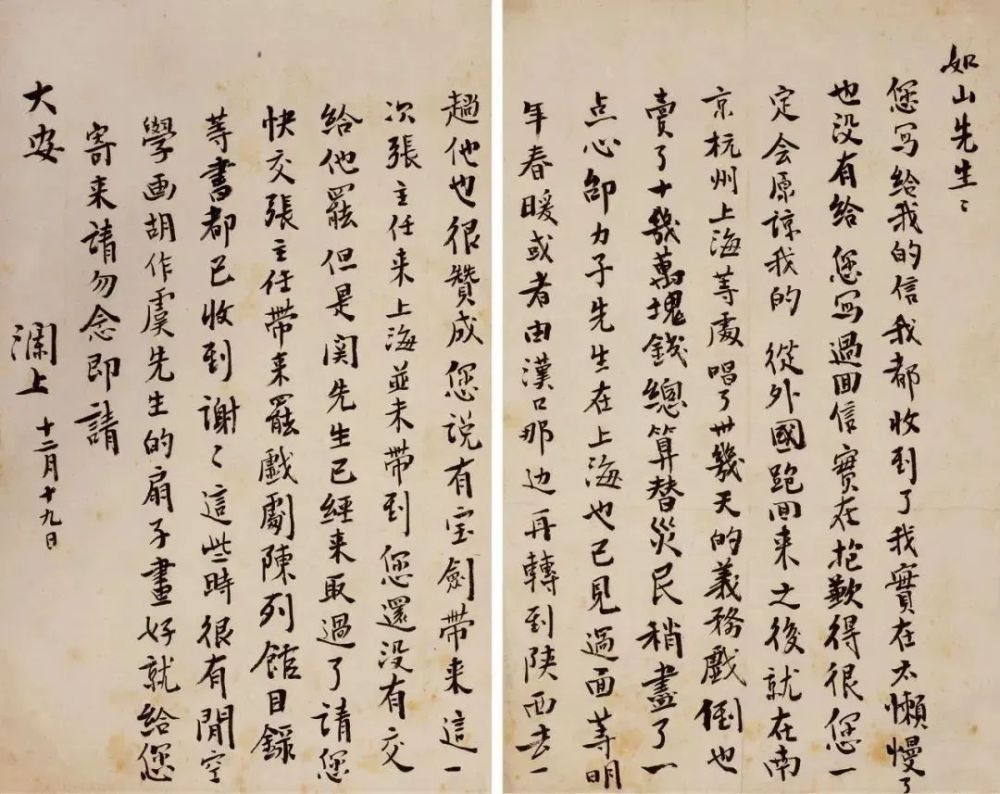 如山先生：
您写给我的信我都收到了我實在太懶慢了
也没有给您写過回信實在抱歉得很您一
定会原諒我的從外國跑回来之後就在南
京杭州上海等處唱了卅幾天的義務戲倒也
賣了十幾萬塊錢總算替災民稍盡了一
点心邵力子先生在上海也已見過面等明
年春暖或者由漢口那边再轉到陕西去一
趟他也很贊成您说有宝劍带来這一
次張主任来上海並未带到您還没有交
给他罷但是関先生已經来取過了請您
快交張主任带来罷戲劇陳列館目録
等書都已收到謝々這些時很有閒空
學画胡作虞先生的扇子畫好就给您
寄来請勿念即請
大安
瀾上
十二月十九日